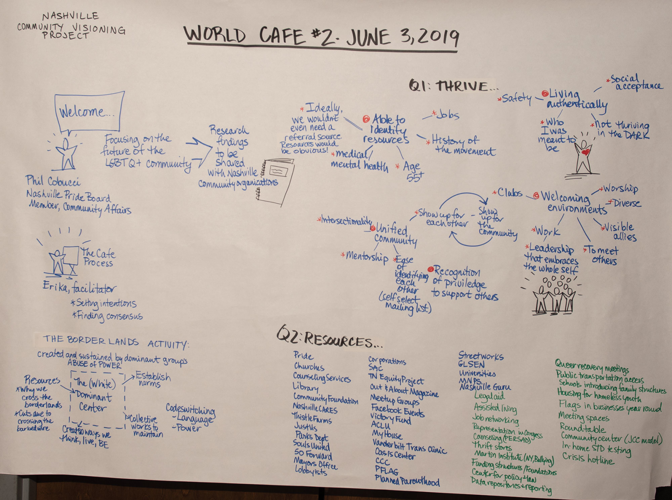 NASHVILLE
COMMUNITY VISIONING
PROJECT
WORLD CAFE #2 - JUNE 3, 2019
Welcome...
Focusing on the
future of the
LGBTQ+ community
Research
findings
to be
shared
with Nashville
community organizations
Phil Cobucci
Nashville Pride Board
Member, Community Affairs
The Cafe
Process
Erika, facilitator
* Setting intentions
* Finding consensus
Q1: THRIVE...
* Ideally,
we wouldn't
even need a
referral source
Resources would
be obvious!
Able to
Identify
resources
* Jobs
* History of
the movement
* Age
* medical/
mental health
* Safety
Living
authentically
* Social
acceptance
* Who
I was
meant to
be
* Not thriving
in the DARK
* Intersectionality
Unified
community
* Mentorship
* Ease
of
Identifying
each
other
(self select
mailing list)
* Show up for
each other
Show
up for
the
community
Recognition
of privilege
to support others
* Clubs
Welcoming
environments
* Worship
* Diverse
* Visible
allies
* To meet
others
* Work
* Leadership
that embraces
the whole self
THE BORDERLANDS ACTIVITY:
created and sustained by dominant groups
ABUSE OF POWER
Resources
* why we
cross the
borderlands
* Cuts due to
crossing the
barbed wire
The (White)
Dominant
Center
Establish
norms
Collective
works to
maintain
Creates ways we
think, live, BE
Codeswitching
- Language
- Power
Q2: RESOURCES...
Pride
Churches
Counseling Services
Library
Community Foundation
Nashville CARES
Thistle Farms
Just Us
Parks Dept
Souls United
SO Forward
Mayors Office
Lobbyists
Corporations
SAC
TN Equity Project
Out & About Magazine
Meetup Groups
Facebook Events
Victory Fund
ACLU
My House
Vanderbilt Trans Clinic
Oasis Center
CCC
PFLAG
Planned Parenthood
Streetworks
GLSEN
Universities
MNPS
Nashville Guru
Legal aid
Assisted living
Job networking
Representation in Congress
Thrift stores
Center for policy + law
Data repositories + reporting
Queer recovery meetings
Public transportation access
Schools introducing family structures
Housing for homeless youth
Flags in businesses year round
Meeting spaces
Roundtable
Community center (JCC model)
In home STD testing
Crisis hotline